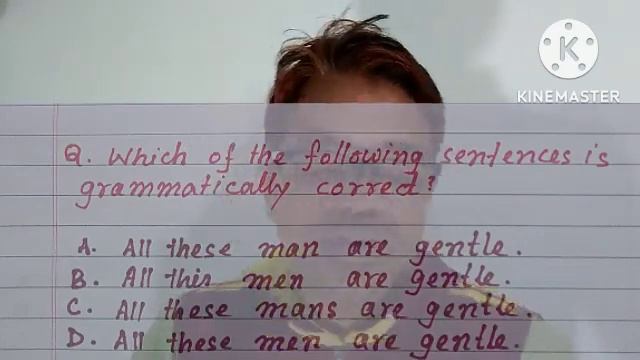 K
KINEMASTER
Q. Which of the following sentences is
grammatically correct?
A. All these man are gentle.
B. All this men are gentle.
C. All these mans are gentle.
D. All these men are gentle.